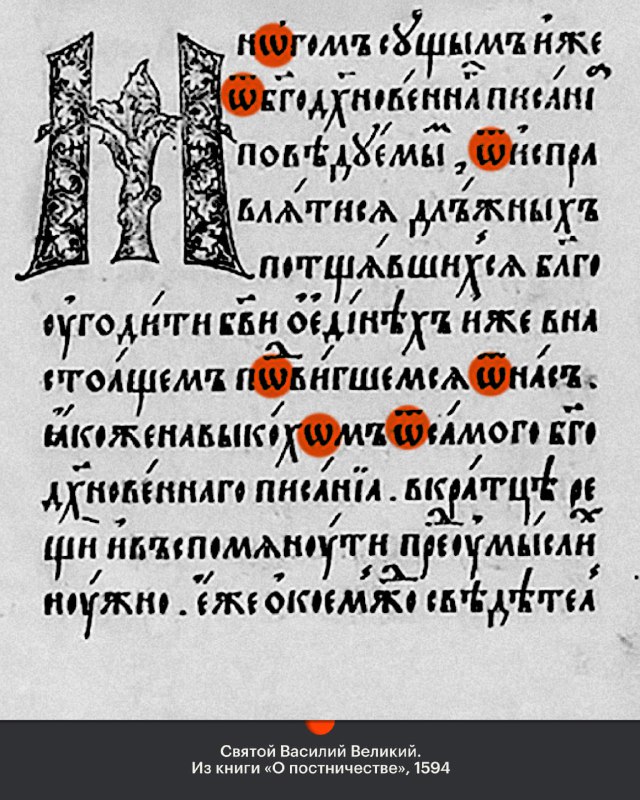 Мнѡ́гомъ сꙋ́щымъ и҆́же
ѿбг҃одх҃нове́нна писа́нї
повѣдꙋ́емыⷨ, ѿи҆спра
влѧ́тисѧ длъ́жныхъ
потщѧ́вшихсѧ бл҃го
оу҆годи́ти бг҃ви ѻ҆еди́нѣхъ и҆же вна
стоа́щемъ пѡⷣви́гшемсѧ ѿна́съ.
ꙗ҆́коже навыко́хѡмъ ѿса́мого бг҃о
дх҃нове́ннаго писа́нїа. вкра́тцѣ ре
щи и҆въспомѧноу́ти преⷣоумы́сли
ноу́жно. е҆́же свѣдѣ́тел
Святой Василий Великий.
Из книги «О постничестве», 1594